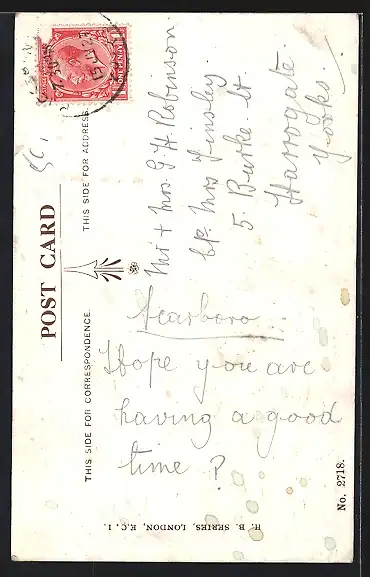 POST CARD
THIS SIDE FOR CORRESPONDENCE.
THIS SIDE FOR ADDRESS.
ONE PENNY
Mr + Mrs. G. H. Robinson
c/o Mrs Tinsley
5. Burke. St
Harrogate.
Yorks.
Scarboro
Hope you are
having a good
time ?
H. B. SERIES, LONDON, E.C. 1.
No. 2718.